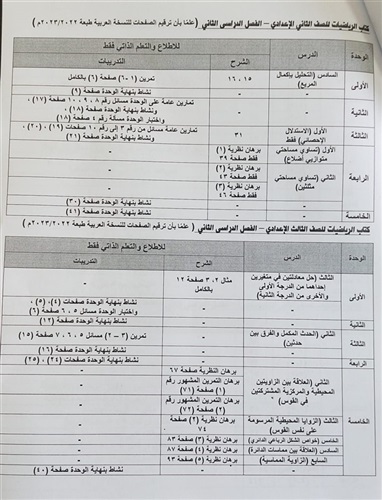 كتاب الرياضيات للصف الثاني الإعدادي – الفصل الدراسي الثاني (علمًا بأن ترقيم الصفحات للنسخة العربية طبعة ٢٠٢٣/٢٠٢٢م)
للاطلاع والتعلم الذاتي فقط
الوحدة الدرس الشرح التدريبات
الأولى السادس (التحليل بإكمال المربع) ١٥ ، ١٦ تمرين (١-٦) صفحة (٦) بالكامل
- - نشاط بنهاية الوحدة صفحة (٩)
الثانية - - تمارين عامة على الوحدة مسائل ٨ ، ٩ ، ١٠ صفحة (١٧)
ونشاط بنهاية الوحدة صفحة (١٨)
واختبار الوحدة مسألة رقم ٤ صفحة (١٨)
الثالثة الأول (الاستدلال الإحصائي) فقط ٣١ تمارين عامة مسائل من رقم ٣ إلى رقم ١٠ صفحات (١٩) ، (٢٠)
ونشاط بنهاية الوحدة صفحة (٢١)
الرابعة الأول (تساوي مساحتي متوازيي أضلاع) برهان نظرية (١) فقط صفحة ٣٩ -
الثاني (تساوي مساحتي مثلثين) برهان نظرية (٢) فقط صفحة ٤٣ -
برهان نظرية (٣) فقط صفحة ٤٦ -
- - نشاط بنهاية الوحدة صفحة (٣٠)
الخامسة - - نشاط بنهاية الوحدة صفحة (٤١)
كتاب الرياضيات للصف الثالث الإعدادي – الفصل الدراسي الثاني (علمًا بأن ترقيم الصفحات للنسخة العربية طبعة ٢٠٢٣/٢٠٢٢م)
للاطلاع والتعلم الذاتي فقط
الوحدة الدرس الشرح التدريبات
الأولى الثالث (حل معادلتين في متغيرين إحداهما من الدرجة الأولى والأخرى من الدرجة الثانية) مثال ٢، ٣ صفحة ١٢ بالكامل -
- - نشاط بنهاية الوحدة صفحات (٤)، (٥) ،
واختبار الوحدة مسائل ٥ ، ٦ صفحة (٦)
الثانية - - نشاط بنهاية الوحدة صفحة (١٢)
الثالثة الثاني (الحدث المكمل والفرق بين حدثين) - تمرين (٣ – ٢) مسائل ٥ ، ٦ ، ٧ صفحة (١٥)
- - نشاط بنهاية الوحدة صفحة (١٦)
الرابعة - - نشاط بنهاية الوحدة صفحات (٢٤) ، (٢٥)
الخامسة الثاني (العلاقة بين الزاويتين المحيطية والمركزية المشتركتين في القوس) برهان النظرية صفحة ٦٧ -
برهان التمرين المشهور رقم (١) صفحة (٧١) -
برهان التمرين المشهور رقم (٢) صفحة (٧٢) -
الثالث (الزوايا المحيطية المرسومة على نفس القوس) برهان نظرية (٢) صفحة ٧٤ -
الخامس (خواص الشكل الرباعي الدائري) برهان نظرية (٣) صفحة ٨٣ -
السادس (العلاقة بين مماسات الدائرة) برهان نظرية (٤) صفحة ٨٧ -
السابع (الزاوية المماسية) برهان نظرية (٥) صفحة ٩٣ -
- - نشاط بنهاية الوحدة صفحة (٤٠)